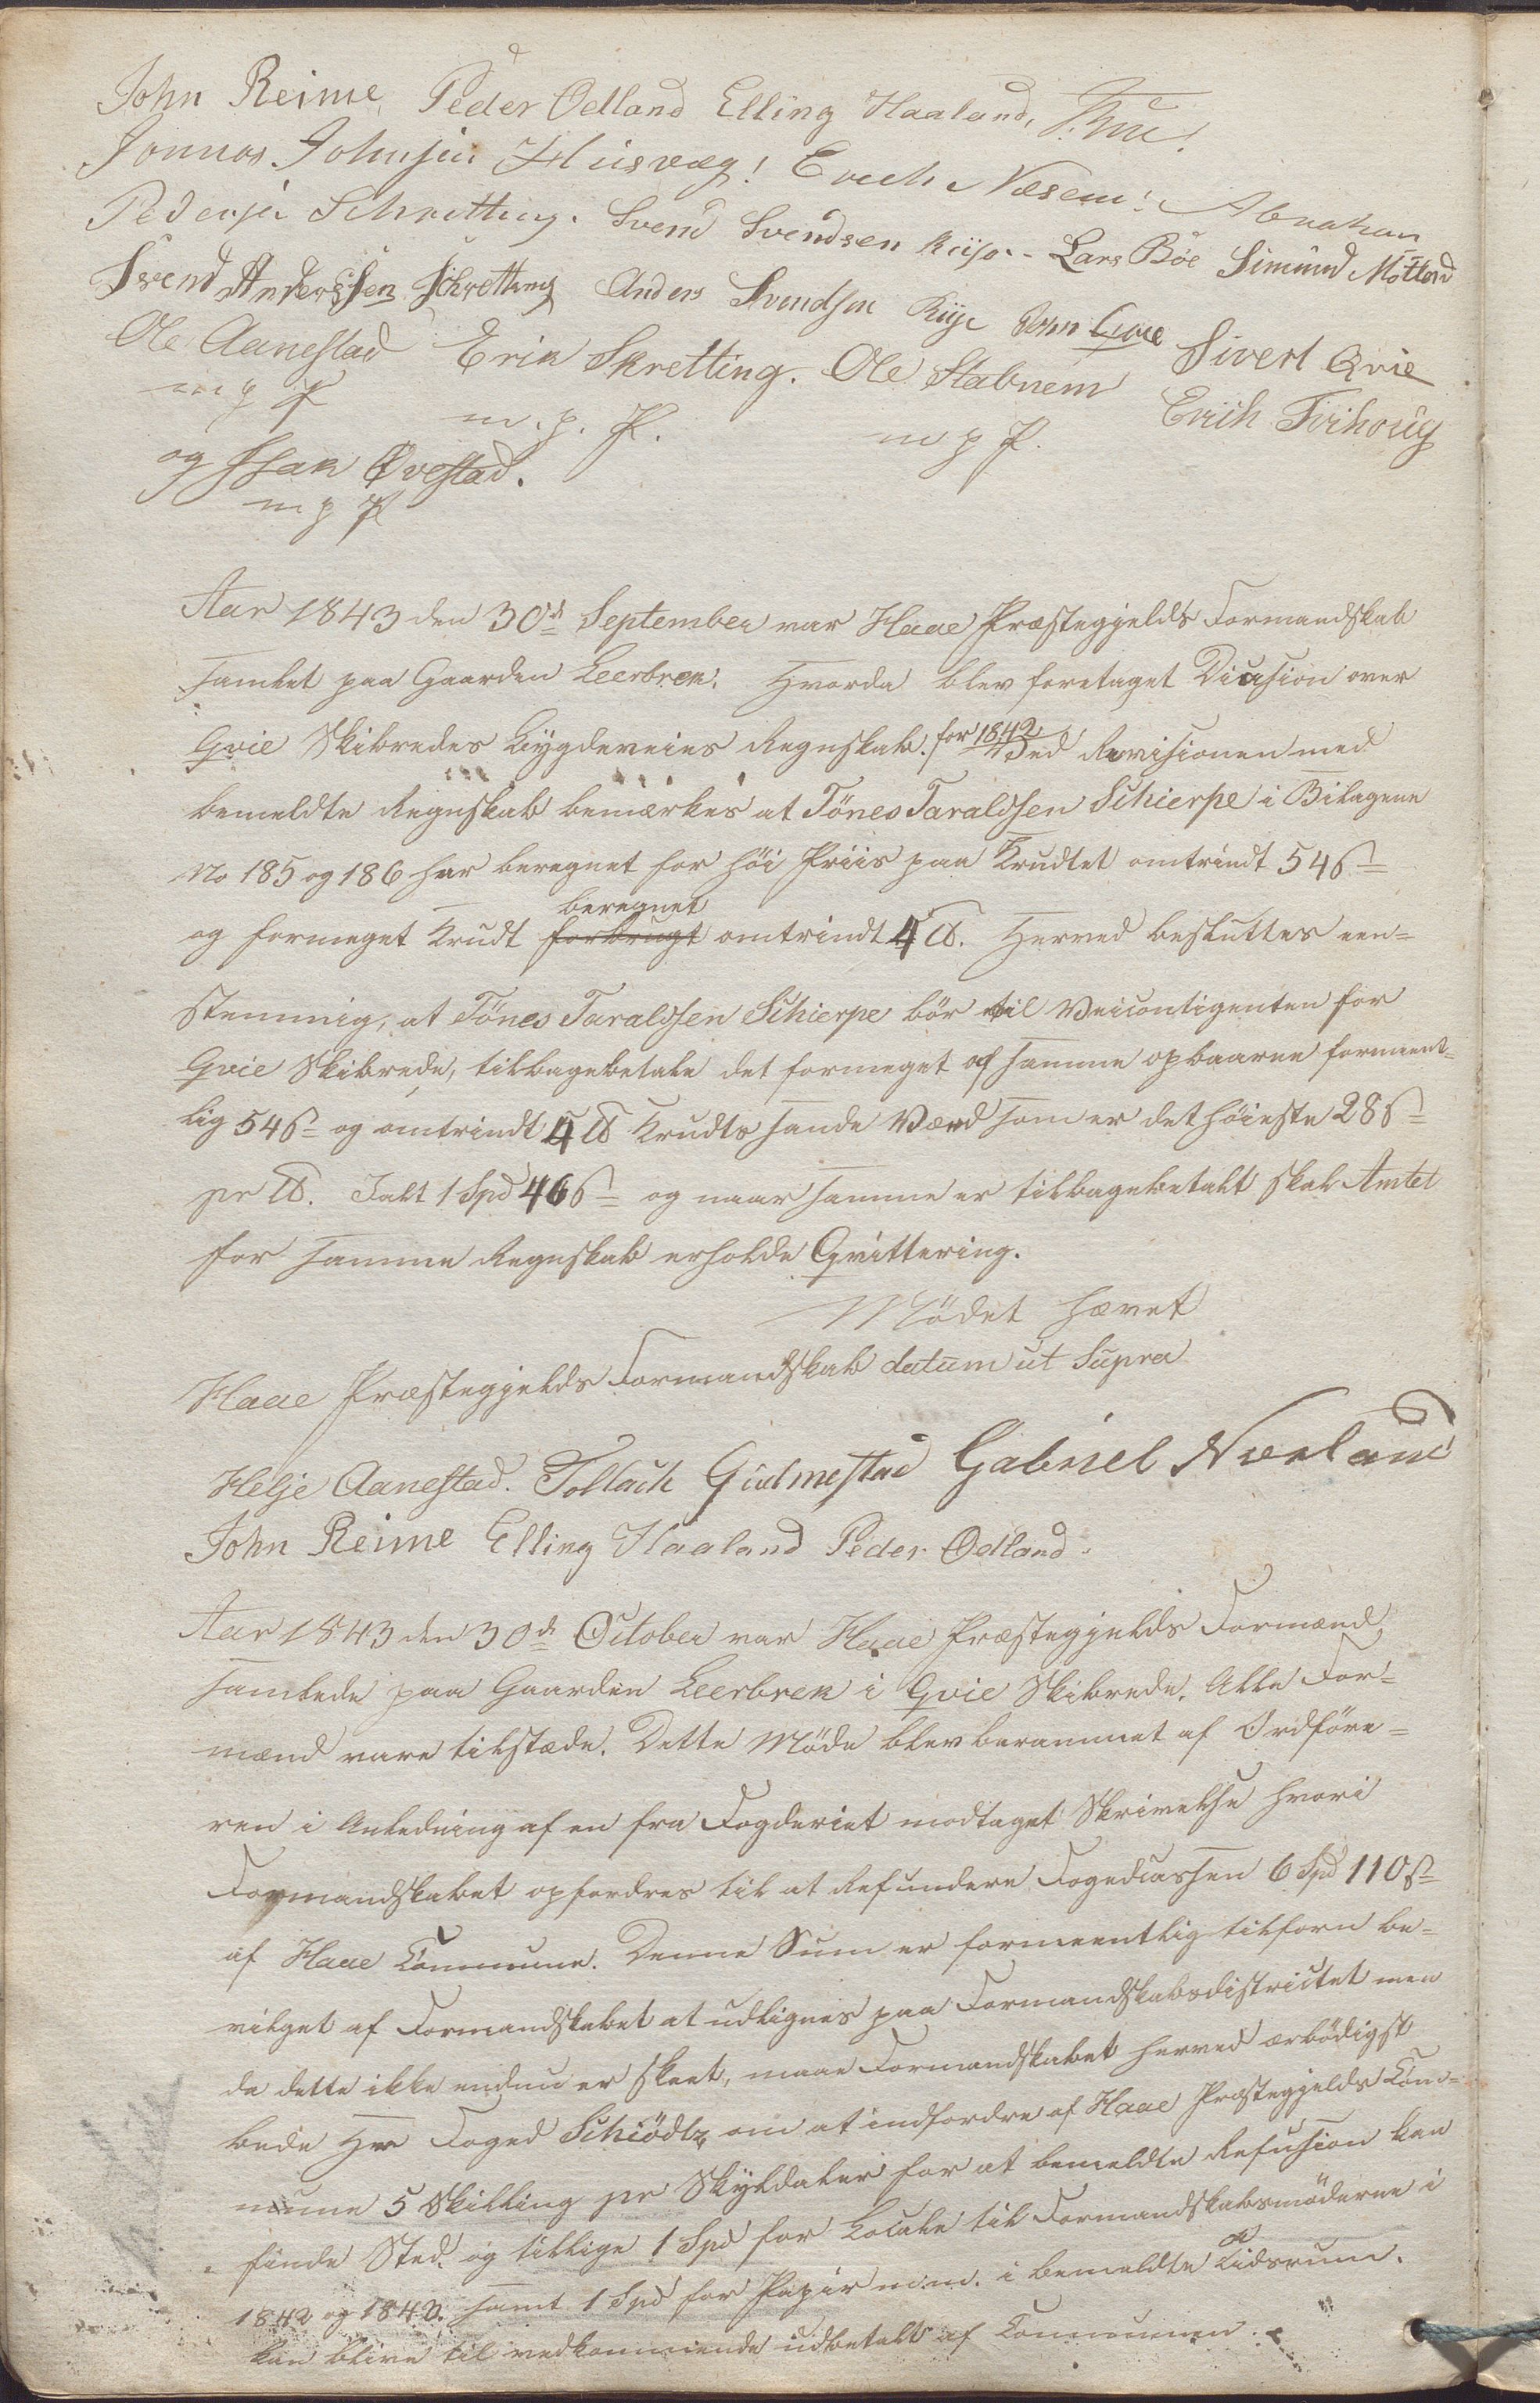 John Reime, Peder Ødland Elling Haaland, Thue!
Jonnas Johnsen Husvæg! Erech Næsem! Abraham
Pedersen Schretting. Svend Svendsen Riise - Lars Böe Simund Motland
Svend Anderssen Schretting Anders Svendsen Riise John Qvie Sivert Qvie
Ole Aanestad Erik Skretting. Ole Stabnem Erich Tvihoug
m p P m. p. P. m p P.
og Isak Øvestad.
m p P
Aar 1843 den 30d September var Haae Præstegjelds Formandskab
samlet paa Gaarden Leerbrek. Hvorda blev foretaget Dicision over
Qvie Skibredes Bygdeveies Regnskab. for 1842 Ved Revisionen med
bemeldte Regnskab bemærkes at Tönes Taraldsen Schierpe i Bilagene
No 185 og 186 har beregnet for höi Priis paa Krudtet omtrindt 54 ß
og formeget Krudt forbrugt beregnet omtrindt 4 ℔. Herved besluttes een-
stemmig, at Tönes Taraldsen Schierpe bör til Veicontigenten for
Qvie Skibrede, tilbagebetale det formeget af samme opbaarne formeent-
lig 54 ß og omtrindt 4 ℔ Krudts sande Værd som er det höieste 28 ß
pr ℔. Ialt 1 Spd 46 ß og naar samme er tilbagebetalt skal Amtet
for samme Regnskab erholde Qvittering.
Mödet hævet
Haae Præstegjelds Formandskab datum ut Supra
Helje Aanestad. Tollach Gudmestad Gabriel Nærland
John Reime Elling Haaland Peder Ødland.
Aar 1843 den 30d October var Haae Præstegjelds Formænd
samlede paa Gaarden Leerbrek i Qvie Skibrede. Alle For-
mænd vare tilstæde. Dette Möde blev berammet af Ordföre-
ren i Anledning af en fra Fogderiet modtaget Skrivelse hvori
Formandskabet opfordres til at Refundere Fogedcassen 6 Spd 110 ß
af Haae Commune. Denne Sum er formeentlig tilforn be-
vilget af Formandskabet at udlignes paa Formandskabsdistrictet men
da dette ikke endnu er skeet, maae Formandskabet herved ærbödigst
bede Hr Foged Schiödtz om at indfordre af Haae Præstegjelds Com-
mune 5 Skilling pr Skyldaler for at bemeldte Refusion kan
finde Sted. og tillige 1 Spd for Locale til Formandskabsmöderne i
1842 og 1843. samt 1 Spd for Papiir m.m. i bemeldte Tidsrum.
kan blive til vedkommende udbetalt af Communen.